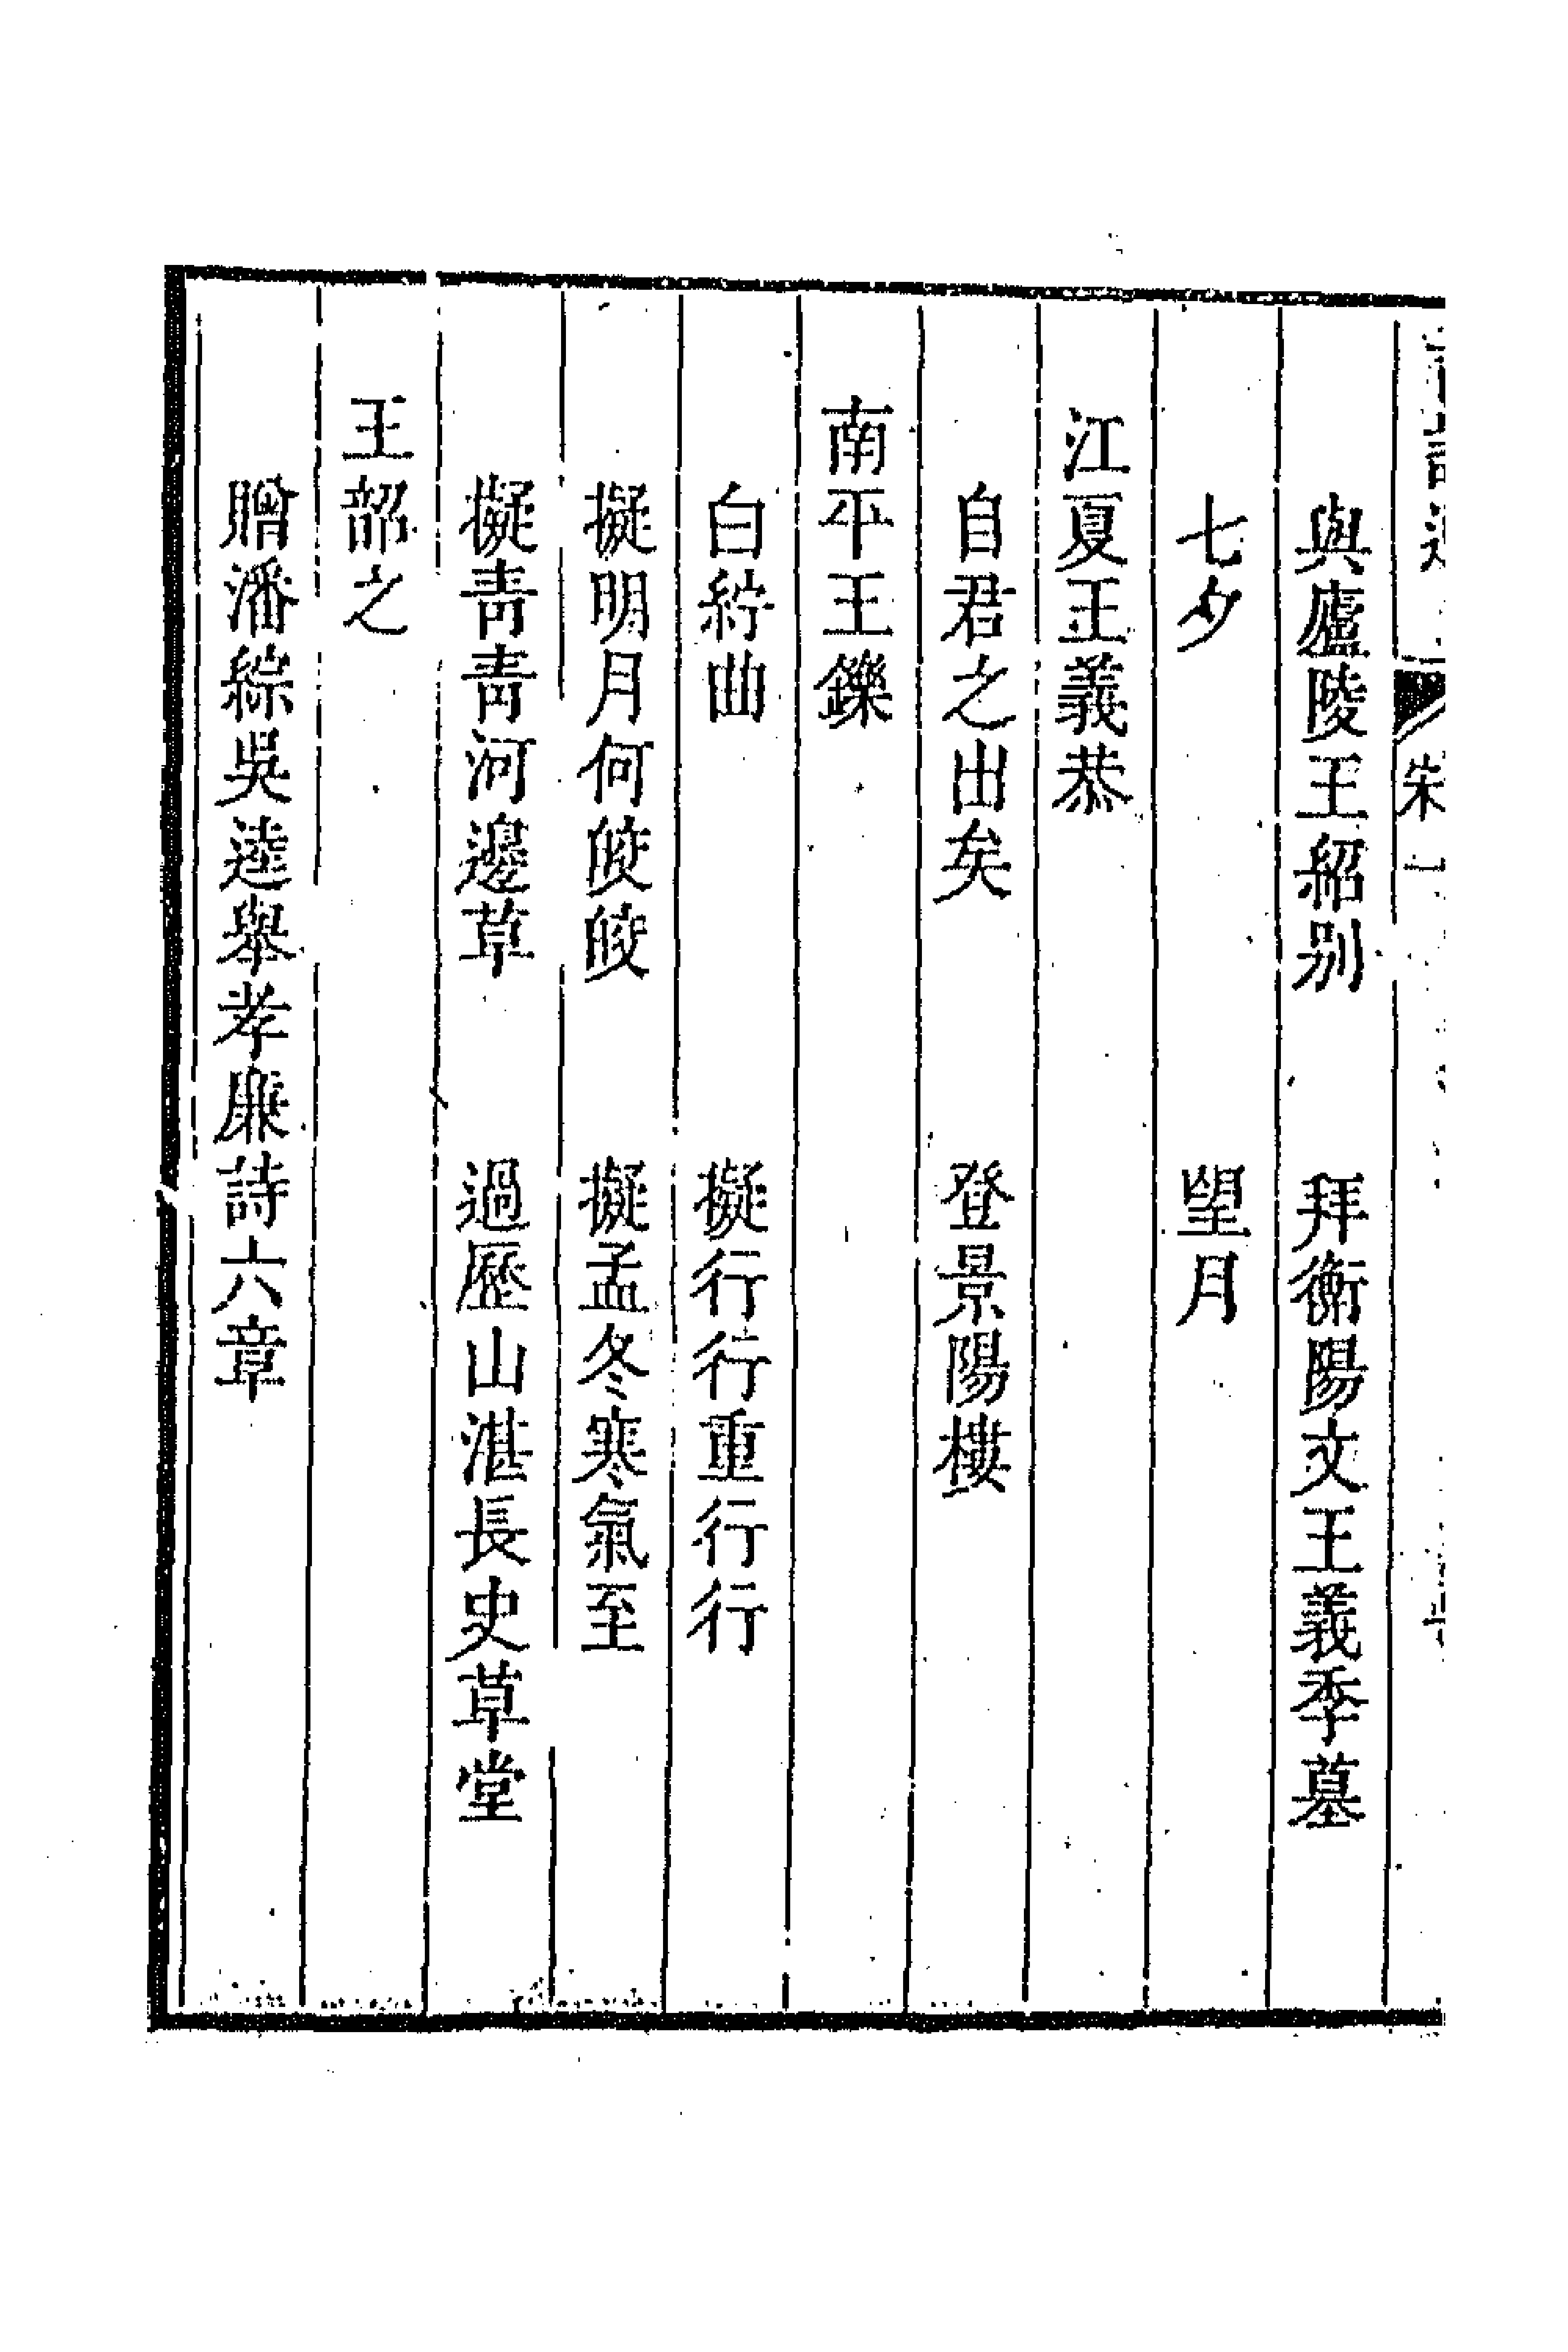 與廬陵王紹别　拜衡陽文王義季墓
七夕　望月
江夏王義恭
自君之出矣　登景陽樓
南平王鑠
白紵曲　擬行行重行行
擬明月何皎皎　擬孟冬寒氣至
擬青青河邊草　過歷山湛長史草堂
王韶之
贈潘綜吳逵舉孝廉詩六章